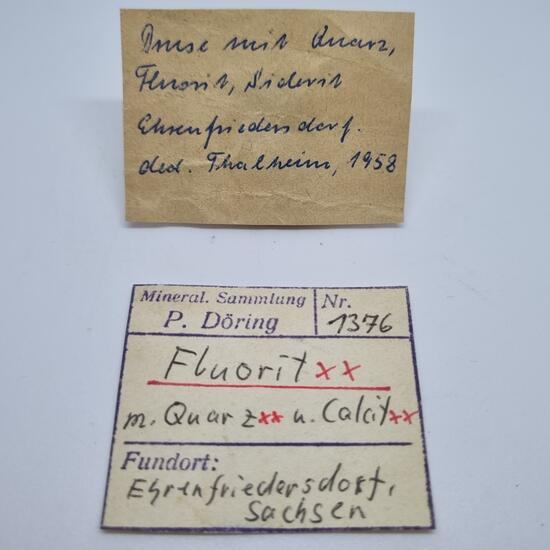 Druse mit Quarz,
Fluorit, Siderit
Ehrenfriedersdorf.
ded. Thalheim, 1958
Mineral. Sammlung
P. Döring
Nr.
1376
Fluorit xx
m. Quarz xx u. Calcit xx
Fundort:
Ehrenfriedersdorf,
Sachsen